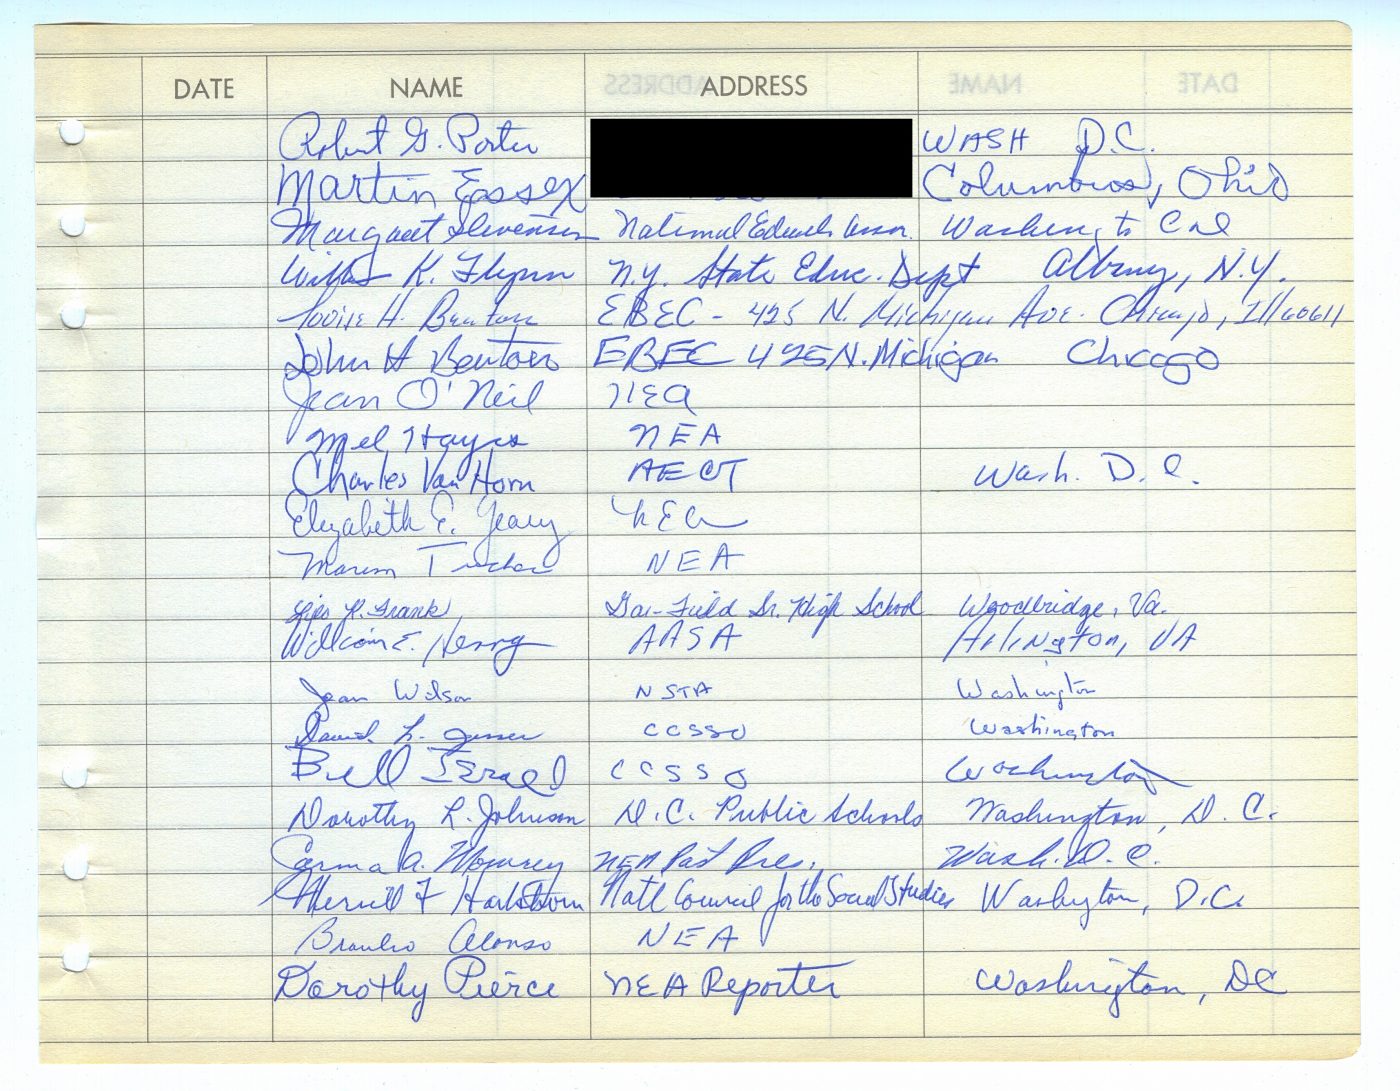 DATE NAME ADDRESS
Robert G. Porter WASH D.C.
Martin Essex Columbus, Ohio
Margaret Stevenson National Assn. Washington
K. Flynn N.Y. State Educ. Dept Albany, N.Y.
Louise H. Benton EBEC - 425 N. Michigan Ave. Chicago, Ill 60611
John H Benton EBEC 425 N. Michigan Chicago
Jean O'Neil NEA
Mel Hayes NEA
Charles Van Horn AECT Wash. D.C.
Elizabeth E. Geary NEA
NEA
R. Frank Gar-Field Sr. High School Woodbridge, Va.
William E. Henry AASA Arlington, VA
Jean Wilson NSTA Washington
David L. CCSSO Washington
Bill Israel CCSSO Washington
Dorothy L. Johnson D.C. Public Schools Washington, D.C.
A. NEA Past Pres. Wash. D.C.
Merrill F Hartshorn Natl Council for the Social Studies Washington, D.C.
Braulio Alonso NEA
Dorothy Pierce NEA Reporter Washington, DC